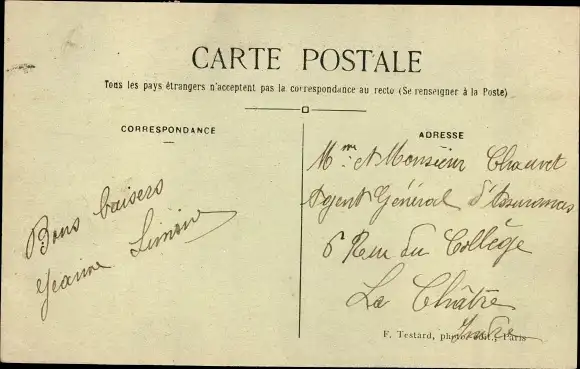 CARTE POSTALE
Tous les pays étrangers n'acceptent pas la correspondance au recto (Se renseigner à la Poste)
CORRESPONDANCE
Bons baisers
Jeanne Simon
ADRESSE
Mme et Monsieur Chauvet
Agent Général d'Assurances
6 Rue du Collège
La Châtre
Indre
F. Testard, photo-édit., Paris